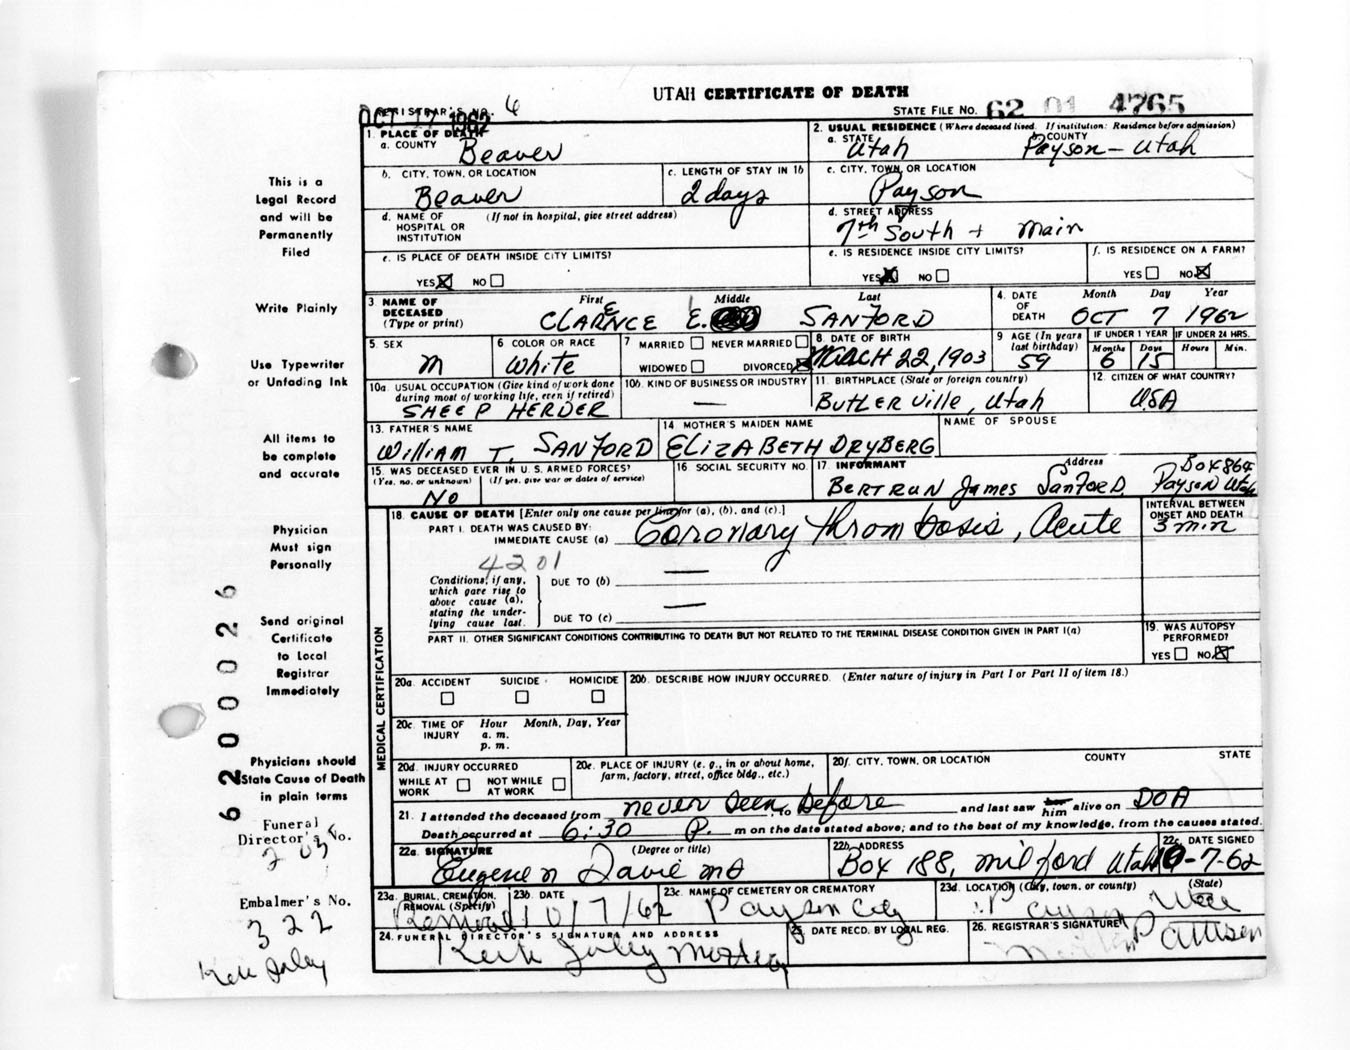 UTAH CERTIFICATE OF DEATH
REGISTRAR'S NO. 6
OCT 17 1962
STATE FILE NO. 62 01 4765
1. PLACE OF DEATH
a. COUNTY Beaver
2. USUAL RESIDENCE (Where deceased lived. If institution: Residence before admission)
a. STATE Utah b. COUNTY Payson - Utah
b. CITY, TOWN, OR LOCATION Beaver
c. LENGTH OF STAY IN 1b 2 days
c. CITY, TOWN, OR LOCATION Payson
d. NAME OF HOSPITAL OR INSTITUTION (If not in hospital, give street address)
d. STREET ADDRESS 7th South + Main
e. IS PLACE OF DEATH INSIDE CITY LIMITS?
YES NO
e. IS RESIDENCE INSIDE CITY LIMITS?
YES NO
f. IS RESIDENCE ON A FARM?
YES NO
3 NAME OF DECEASED (Type or print)
First Middle Last
CLARENCE E. SANFORD
4. DATE OF DEATH Month Day Year
OCT 7 1962
5. SEX M
6 COLOR OR RACE White
7 MARRIED NEVER MARRIED
WIDOWED DIVORCED
8. DATE OF BIRTH MARCH 22, 1903
9 AGE (In years last birthday) 59
IF UNDER 1 YEAR Months 6 Days 15
IF UNDER 24 HRS. Hours Min.
10a. USUAL OCCUPATION (Give kind of work done during most of working life, even if retired)
SHEEP HERDER
10b. KIND OF BUSINESS OR INDUSTRY —
11. BIRTHPLACE (State or foreign country)
BUTLERVILLE, Utah
12. CITIZEN OF WHAT COUNTRY?
USA
13. FATHER'S NAME
William T. SANFORD
14 MOTHER'S MAIDEN NAME
ELIZABETH DRYBERG
NAME OF SPOUSE
15. WAS DECEASED EVER IN U. S. ARMED FORCES?
(Yes, no, or unknown) (If yes, give war or dates of service)
No
16 SOCIAL SECURITY NO.
17. INFORMANT Address
BERTRUN James SANFORD, Box 864 Payson Utah
18. CAUSE OF DEATH [Enter only one cause per line for (a), (b), and (c).]
INTERVAL BETWEEN ONSET AND DEATH
PART I. DEATH WAS CAUSED BY:
IMMEDIATE CAUSE (a) Coronary thrombosis, Acute 3 min
4201
Conditions, if any, which gave rise to above cause (a), stating the underlying cause last.
DUE TO (b) —
DUE TO (c) —
PART II. OTHER SIGNIFICANT CONDITIONS CONTRIBUTING TO DEATH BUT NOT RELATED TO THE TERMINAL DISEASE CONDITION GIVEN IN PART I(a)
19. WAS AUTOPSY PERFORMED?
YES NO
MEDICAL CERTIFICATION
20a. ACCIDENT SUICIDE HOMICIDE
20b. DESCRIBE HOW INJURY OCCURRED. (Enter nature of injury in Part I or Part II of item 18.)
20c. TIME OF INJURY Hour Month, Day, Year
a. m.
p. m.
20d. INJURY OCCURRED
WHILE AT WORK NOT WHILE AT WORK
20e. PLACE OF INJURY (e. g., in or about home, farm, factory, street, office bldg., etc.)
20f. CITY, TOWN, OR LOCATION COUNTY STATE
21. I attended the deceased from never seen, to before and last saw him alive on DOA
Death occurred at 6:30 P. m on the date stated above; and to the best of my knowledge, from the causes stated.
22a. SIGNATURE (Degree or title)
Eugene N Davie MD
22b. ADDRESS
Box 188, Milford Utah
22c. DATE SIGNED
10-7-62
23a. BURIAL, CREMATION, REMOVAL (Specify) Removal
23b. DATE 10/7/62
23c. NAME OF CEMETERY OR CREMATORY
Payson City
23d. LOCATION (City, town, or county) (State)
Payson Utah
24. FUNERAL DIRECTOR'S SIGNATURE AND ADDRESS
25. DATE RECD. BY LOCAL REG.
26. REGISTRAR'S SIGNATURE
This is a
Legal Record
and will be
Permanently
Filed
Write Plainly
Use Typewriter
or Unfading Ink
All items to
be complete
and accurate
Physician
Must sign
Personally
Send original
Certificate
to Local
Registrar
Immediately
Physicians should
State Cause of Death
in plain terms
Funeral
Director's No.
Embalmer's No.
322
6200026